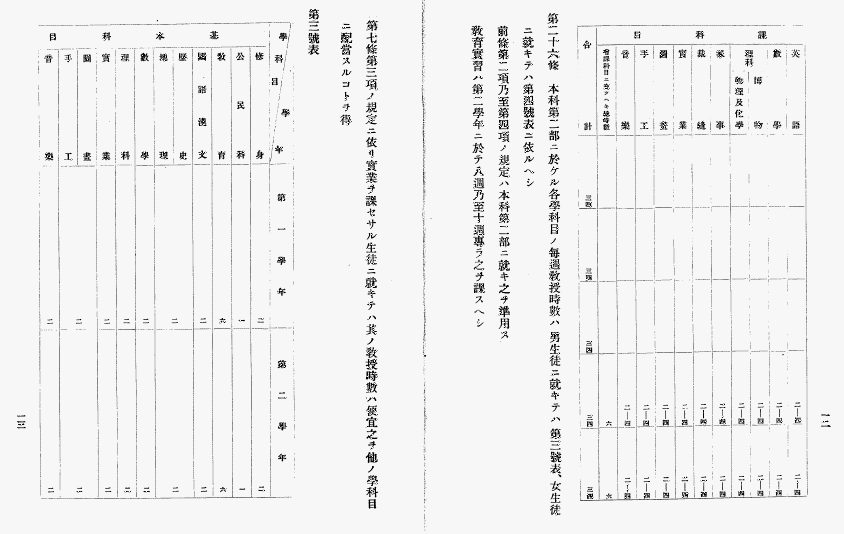 課科目
英語 二―四 二―四
數學 二―四 二―四
理科
博物 二―四 二―四
物理及化學 二―四 二―四
家事 二―四 二―四
裁縫 二―四 二―四
實業 二―四 二―四
圖畫 二―四 二―四
手工 二―四 二―四
音樂 二―四 二―四
科目ニ充ツヘキ總時數 六 六
合計 三四 三四 三四 三四 三四
一二
第二十六條 本科第二部ニ於ケル各學科目ノ每週敎授時數ハ男生徒ニ就キテハ第三號表、女生徒
ニ就キテハ第四號表ニ依ルヘシ
前條第二項乃至第四項ノ規定ハ本科第二部ニ就キ之ヲ準用ス
敎育實習ハ第二學年ニ於テ八週乃至十週專ラ之ヲ課スヘシ
第七條第三項ノ規定ニ依リ實業ヲ課セサル生徒ニ就キテハ其ノ敎授時數ハ便宜之ヲ他ノ學科目
ニ配當スルコトヲ得
第三號表
學科目 學年 第一學年 第二學年
基本科目
修身 二 二
公民科 一 一
敎育 六 六
國語漢文 二 二
歷史
地理 二 二
數學 二 二
理科 二 二
實業 二 二
圖畫
手工 二 二
音樂 二 二
一三